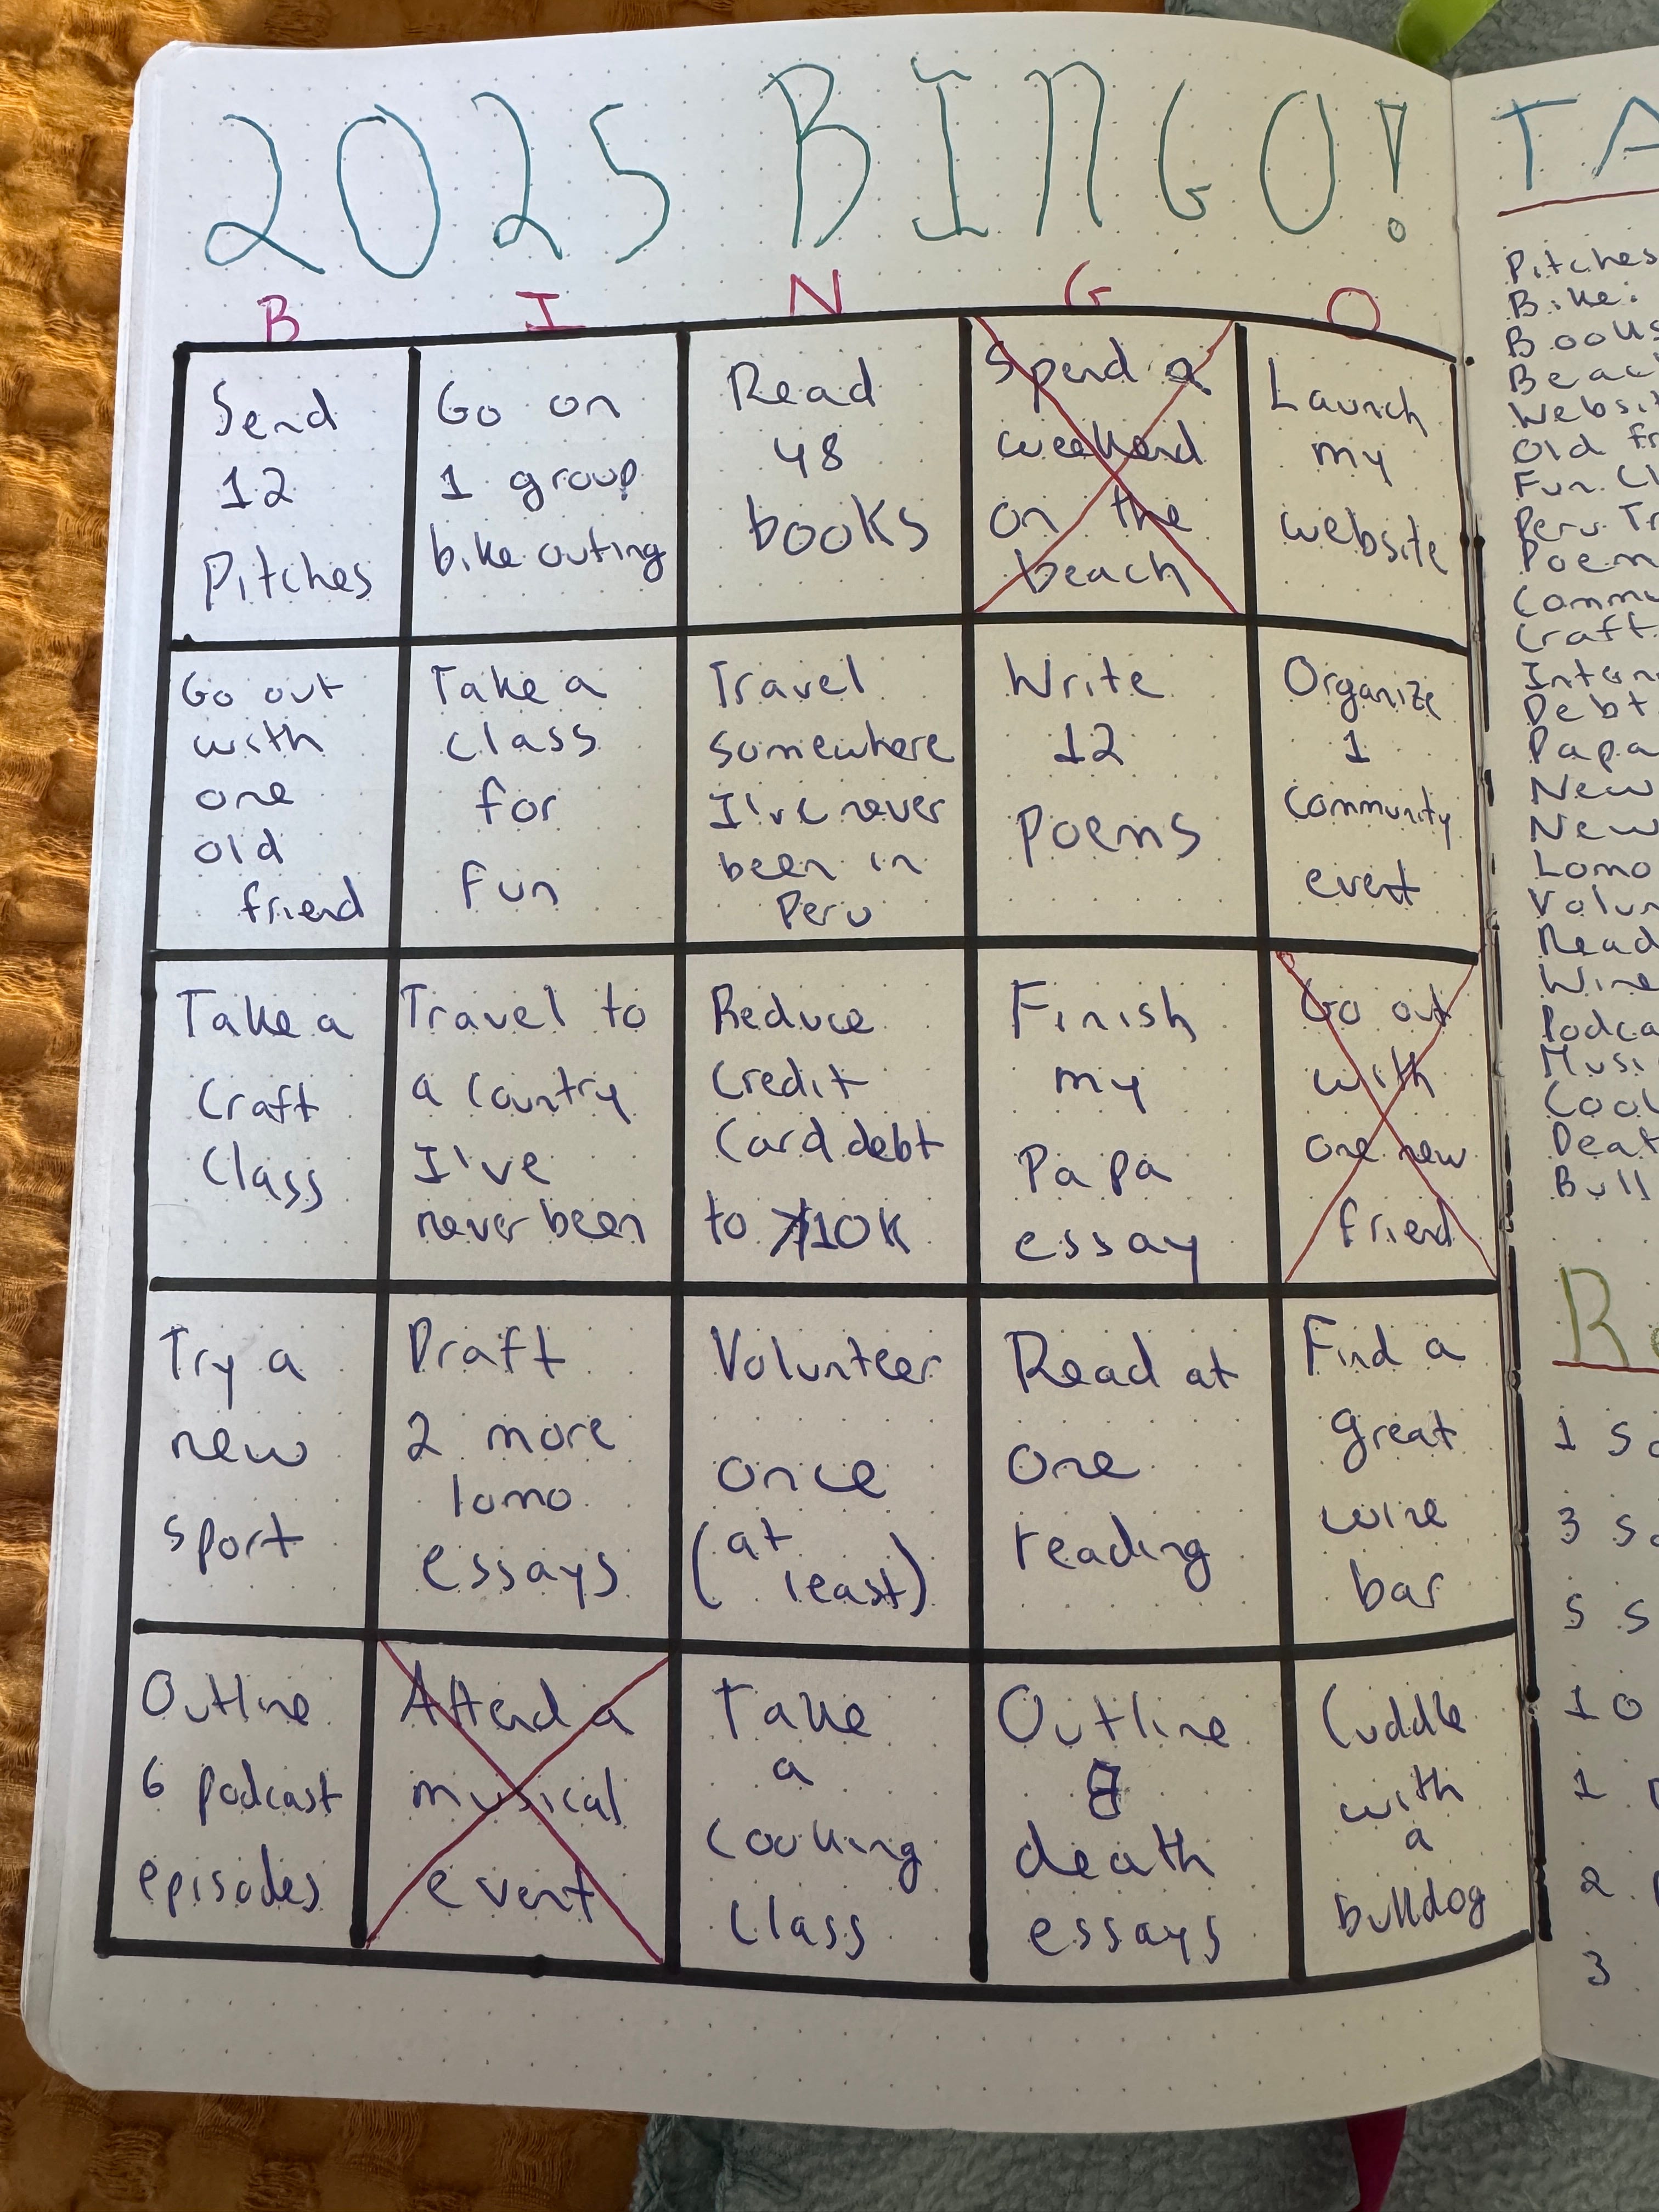 2025 BINGO!
B I N G O
Send
12
Pitches
Go on
1 group
bike outing
Read
48
books
Spend a
weekend
on the
beach
Launch
my
website
Go out
with
one
old
friend
Take a
class
for
fun
Travel
somewhere
I've never
been in
Peru
Write
12
poems
Organize
1
community
event
Take a
craft
class
Travel to
a country
I've
never been
Reduce
credit
card debt
to 10K
Finish
my
Papa
essay
Go out
with
one new
friend
Try a
new
sport
Draft
2 more
lomo
essays
Volunteer
once
(at
least)
Read at
one
reading
Find a
great
wine
bar
Outline
6 podcast
episodes
Attend a
musical
event
Take
a
cooking
class
Outline
8
death
essays
Cuddle
with
a
bulldog
TA
Pitches
Bike:
Books
Beac
Websi
Old fr
Fun Cl
Peru Tr
Poem
Commu
Craft
Intern
Debt
Papa
New
New
Lomo
Volun
Read
Wine
Podca
Musi
Cool
Deat
Bull
R
1 S
3 S
5 S
10
1
2
3